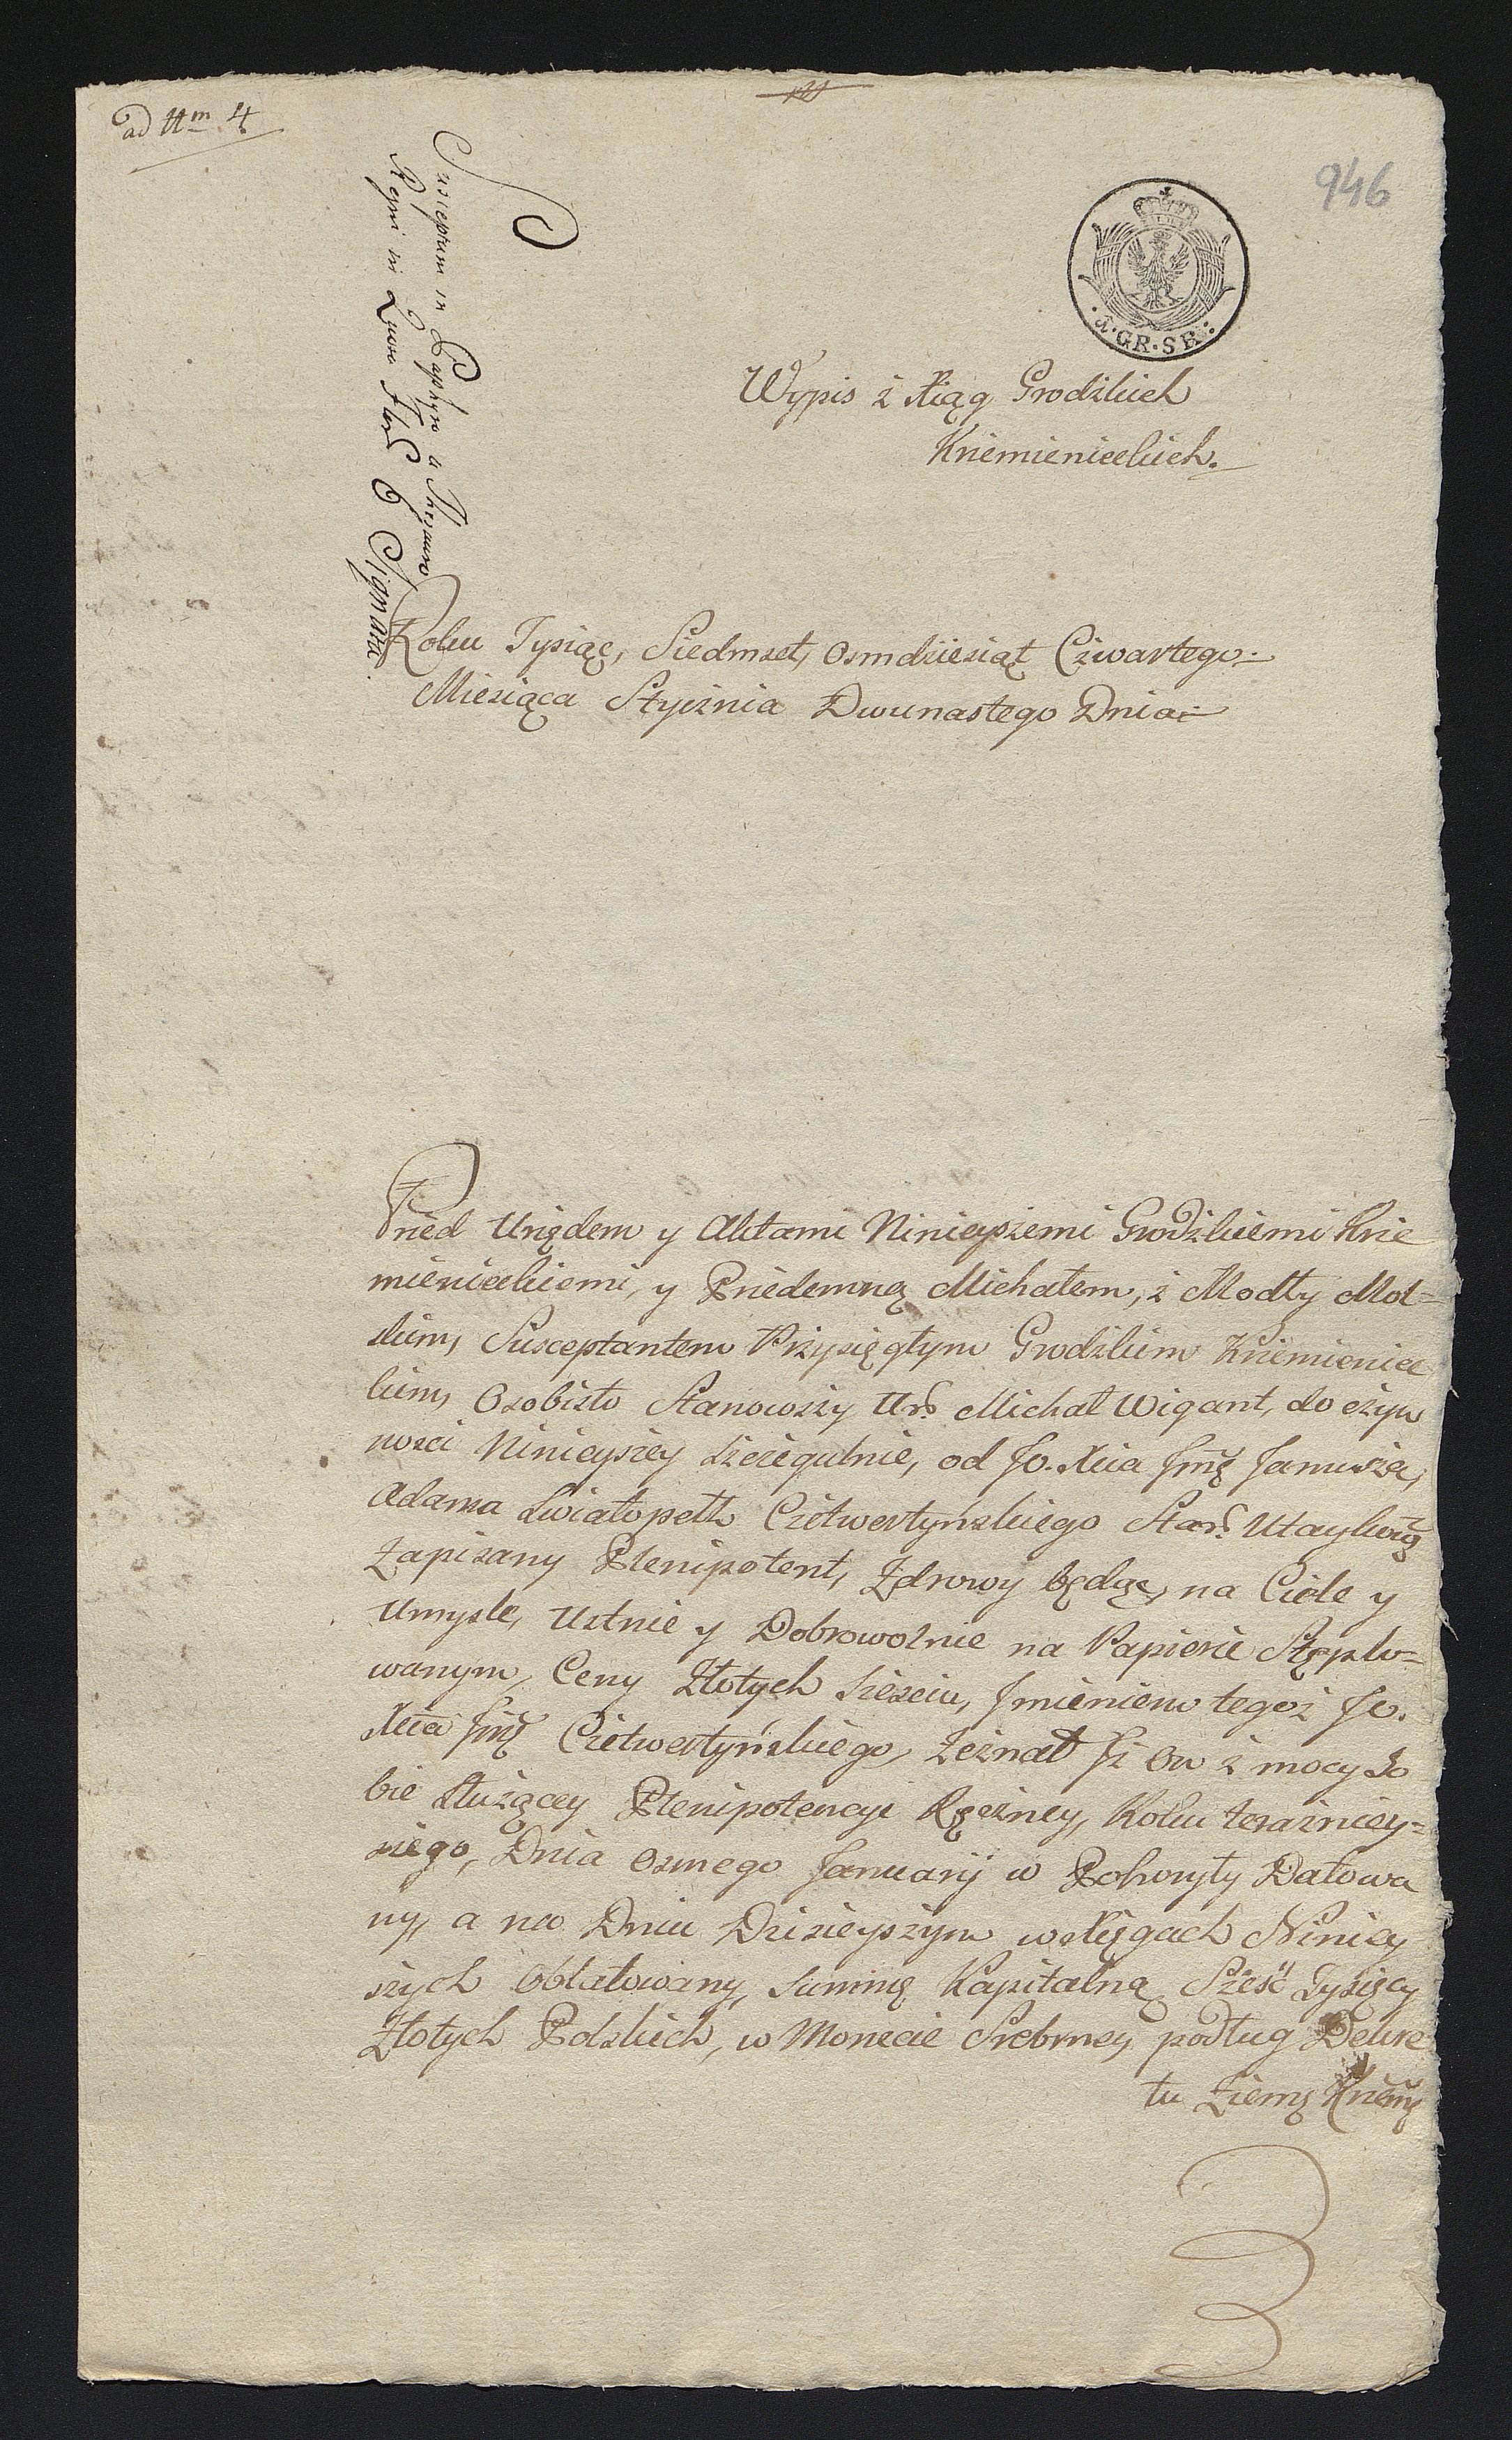 ad Nm 4
946
Susceptum in Paphyro a Thesauro
Regni in Quota Flor 6 Signata
4·GR·SR·
Wypis z Xiąg Grodzkich
Krzemienieckich.
Roku Tysiąc, Siedmset, Osmdziesiąt Czwartego
Miesiąca Stycznia Dwunastego Dnia
Przed Urzędem y Aktami Ninieyszemi Grodzkiemi Krze
mienieckiemi, y Przedemną Michałem, z Modły Mol=
skim, Susceptantem Przysięgłym Grodzkim Krzemieniec
kim, Osobisto Stanowszy Ur: Michał Wigant, do czyn
ności Ninieyszey szczegulnie, od Jo. Xcia Jmę Janusza,
Adama Swiatopełk Czetwertyńskiego Star: Utaykowg
Zapisany Plenipotent, Zdrowy będąc, na Ciele y
Umysle, Ustnie y Dobrowolnie na Papierze Stęplo=
wanym, Ceny Złotych Sześciu, Jmieniem tegoż Jo.
Xcia Jmę Czetwertyńskiego, Zeznał Jż On z mocy So
bie służącey Plenipotencyi Ręczney, Roku teraźniey=
szego, Dnia Osmego Januarij w Pohoryły Datowa
ny, a na Dniu Dzisieyszym w Xięgach Niniey
szych Oblatowany, Summę Kapitalną Sześć Tysięcy
Złotych Polskich, w Monecie Srebrney, podług Dekre
tu Ziemş Krzemş